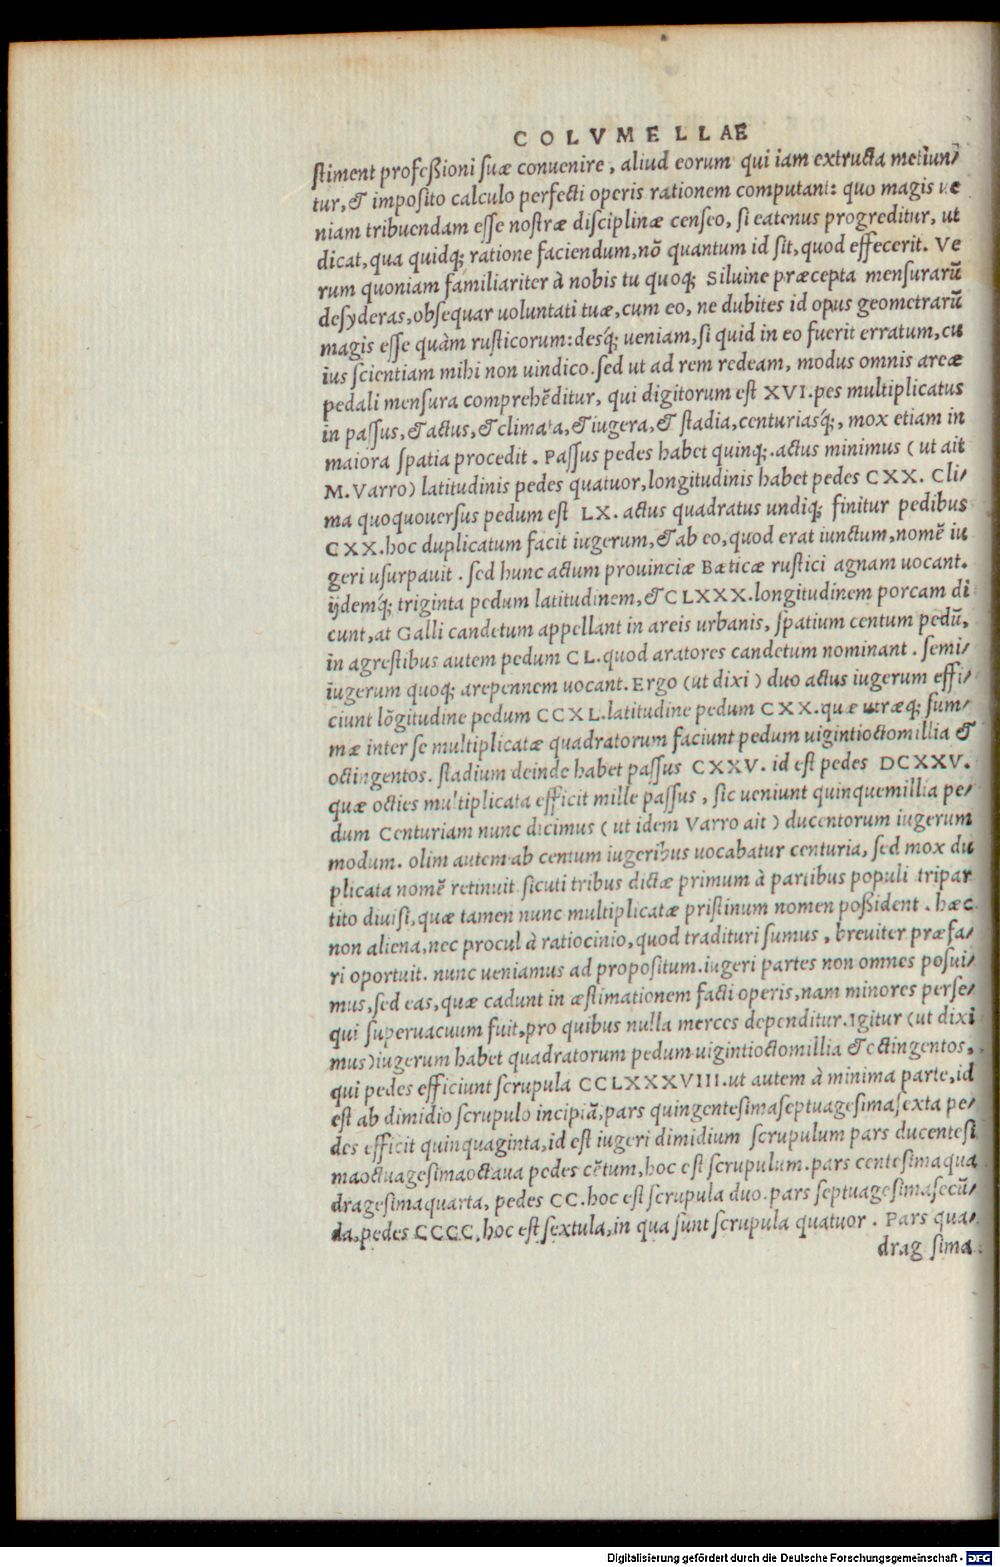 COLVMELLAE
ſtiment profeßioni ſuæ conuenire, aliud eorum qui iam extructa metiun/
tur, & impoſito calculo perfecti operis rationem computant: quo magis ue
niam tribuendam eſſe noſtræ diſciplinæ cenſeo, ſi eatenus progreditur, ut
dicat, qua quidq; ratione faciendum, nõ quantum id ſit, quod effecerit. Ve
rum quoniam familiariter à nobis tu quoq; Siluine præcepta menſurarũ
deſyderas, obſequar uoluntati tuæ, cum eo, ne dubites id opus geometrarũ
magis eſſe quàm ruſticorum: desq́; ueniam, ſi quid in eo fuerit erratum, cu
ius ſcientiam mihi non uindico. ſed ut ad rem redeam, modus omnis areæ
pedali menſura comprehẽditur, qui digitorum eſt XVI. pes multiplicatus
in paſſus, & actus, & climata, & iugera, & ſtadia, centuriasq́;, mox etiam in
maiora ſpatia procedit. Paſſus pedes habet quinq;. actus minimus (ut ait
M. Varro) latitudinis pedes quatuor, longitudinis habet pedes CXX. Cli/
ma quoquouerſus pedum eſt LX. actus quadratus undiq; finitur pedibus
CXX. hoc duplicatum facit iugerum, & ab eo, quod erat iunctum, nomẽ iu
geri uſurpauit. ſed hunc actum prouinciæ Bæticæ ruſtici agnam uocant.
ijdemq́; triginta pedum latitudinem, & CLXXX. longitudinem porcam di
cunt, at Galli candetum appellant in areis urbanis, ſpatium centum pedũ,
in agreſtibus autem pedum CL. quod aratores candetum nominant. ſemi/
iugerum quoq; arepennem uocant. Ergo (ut dixi) duo actus iugerum effi/
ciunt lõgitudine pedum CCXL. latitudine pedum CXX. quæ utræq; ſum/
mæ inter ſe multiplicatæ quadratorum faciunt pedum uigintioctomillia &
octingentos. ſtadium deinde habet paſſus CXXV. id eſt pedes DCXXV.
quæ octies multiplicata efficit mille paſſus, ſic ueniunt quinquemillia pe/
dum Centuriam nunc dicimus (ut idem Varro ait) ducentorum iugerum
modum. olim autem ab centum iugeribus uocabatur centuria, ſed mox du
plicata nomẽ retinuit ſicuti tribus dictæ primum à partibus populi tripar
tito diuiſi, quæ tamen nunc multiplicatæ priſtinum nomen poßident. hæc
non aliena, nec procul à ratiocinio, quod tradituri ſumus, breuiter præfa/
ri oportuit. nunc ueniamus ad propoſitum. iugeri partes non omnes poſui/
mus, ſed eas, quæ cadunt in æſtimationem facti operis, nam minores perſe/
qui ſuperuacuum fuit, pro quibus nulla merces dependitur. Igitur (ut dixi
mus) iugerum habet quadratorum pedum uigintioctomillia & octingentos,
qui pedes efficiunt ſcrupula CCLXXXVIII. ut autem à minima parte, id
eſt ab dimidio ſcrupulo incipiã, pars quingenteſimaſeptuageſimaſexta pe/
des efficit quinquaginta, id eſt iugeri dimidium ſcrupulum pars ducenteſi
maoctuageſimaoctaua pedes cẽtum, hoc eſt ſcrupulum. pars centeſimaqua
drageſimaquarta, pedes CC. hoc eſt ſcrupula duo. pars ſeptuageſimaſecũ/
da, pedes CCCC, hoc eſt ſextula, in qua ſunt ſcrupula quatuor. Pars qua/
drag ſima
Digitalisierung gefördert durch die Deutsche Forschungsgemeinschaft - DFG